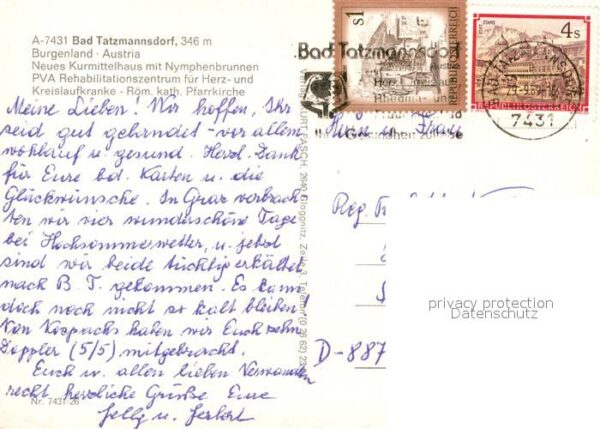 A-7431 Bad Tatzmannsdorf, 346 m
Burgenland · Austria
Neues Kurmittelhaus mit Nymphenbrunnen
PVA Rehabilitationszentrum für Herz- und
Kreislaufkranke - Röm. kath. Pfarrkirche
Meine Lieben! Wir hoffen, Ihr
seid gut gelandet - vor allem
wohlauf u. gesund. Herzl. Dank
für Eure bd. Karten u. die
Glückwünsche. In Graz verbrach-
ten wir vier wunderschöne Tage
bei Hochsommerwetter, u. jetzt
sind wir beide tüchtig erkältet
nach B. T. gekommen. Es kann
doch noch nicht so kalt bleiben!
Von haben wir Euch zehn
Doppler (5/5) mitgebracht.
Euch u. allen lieben Verwandten
recht herzliche Grüße Eure
u.
Nr. 7431/26
KURT FASCH, 2640 Gloggnitz, Zeile 3, Telefon (0 26 62) 23
S1
REPUBLIK ÖSTERREICH
STAMS
4s
REPUBLIK ÖSTERREICH
Bad Tatzmannsdorf
Austria
Herz
Rheuma-
Gesundheit
7431
Herrn u. Frau
Reg.
D-887
privacy protection
Datenschutz